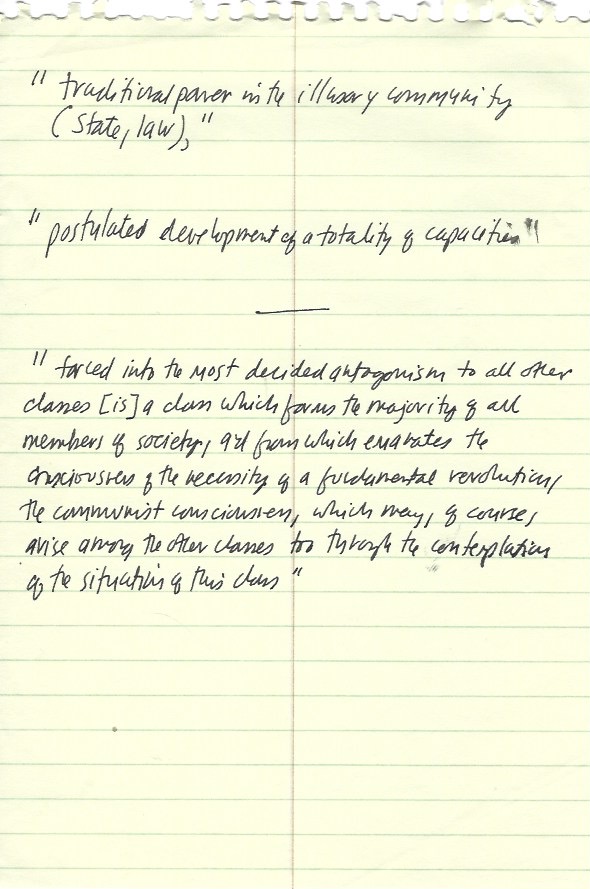 " traditional power in the illusory community
(State, law),"
" postulated development of a totality of capacities"
" forced into the most decided antagonism to all other
classes [is] a class which forms the majority of all
members of society, and from which emanates the
consciousness of the necessity of a fundamental revolution,
the communist consciousness, which may, of course,
arise among the other classes too through the contemplation
of the situation of this class "